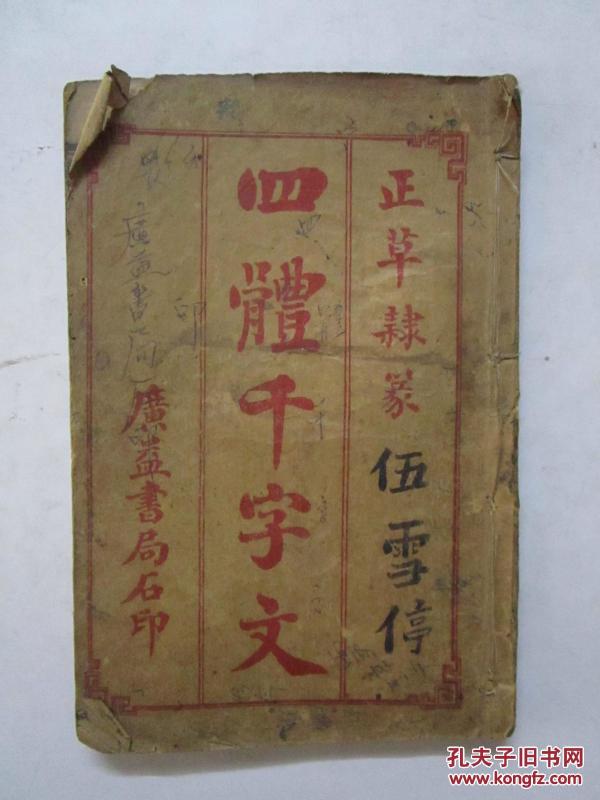 正草隸篆
伍雪停
四體千字文
廣益書局石印
廣益書局
印
孔夫子旧书网
www.kongfz.com